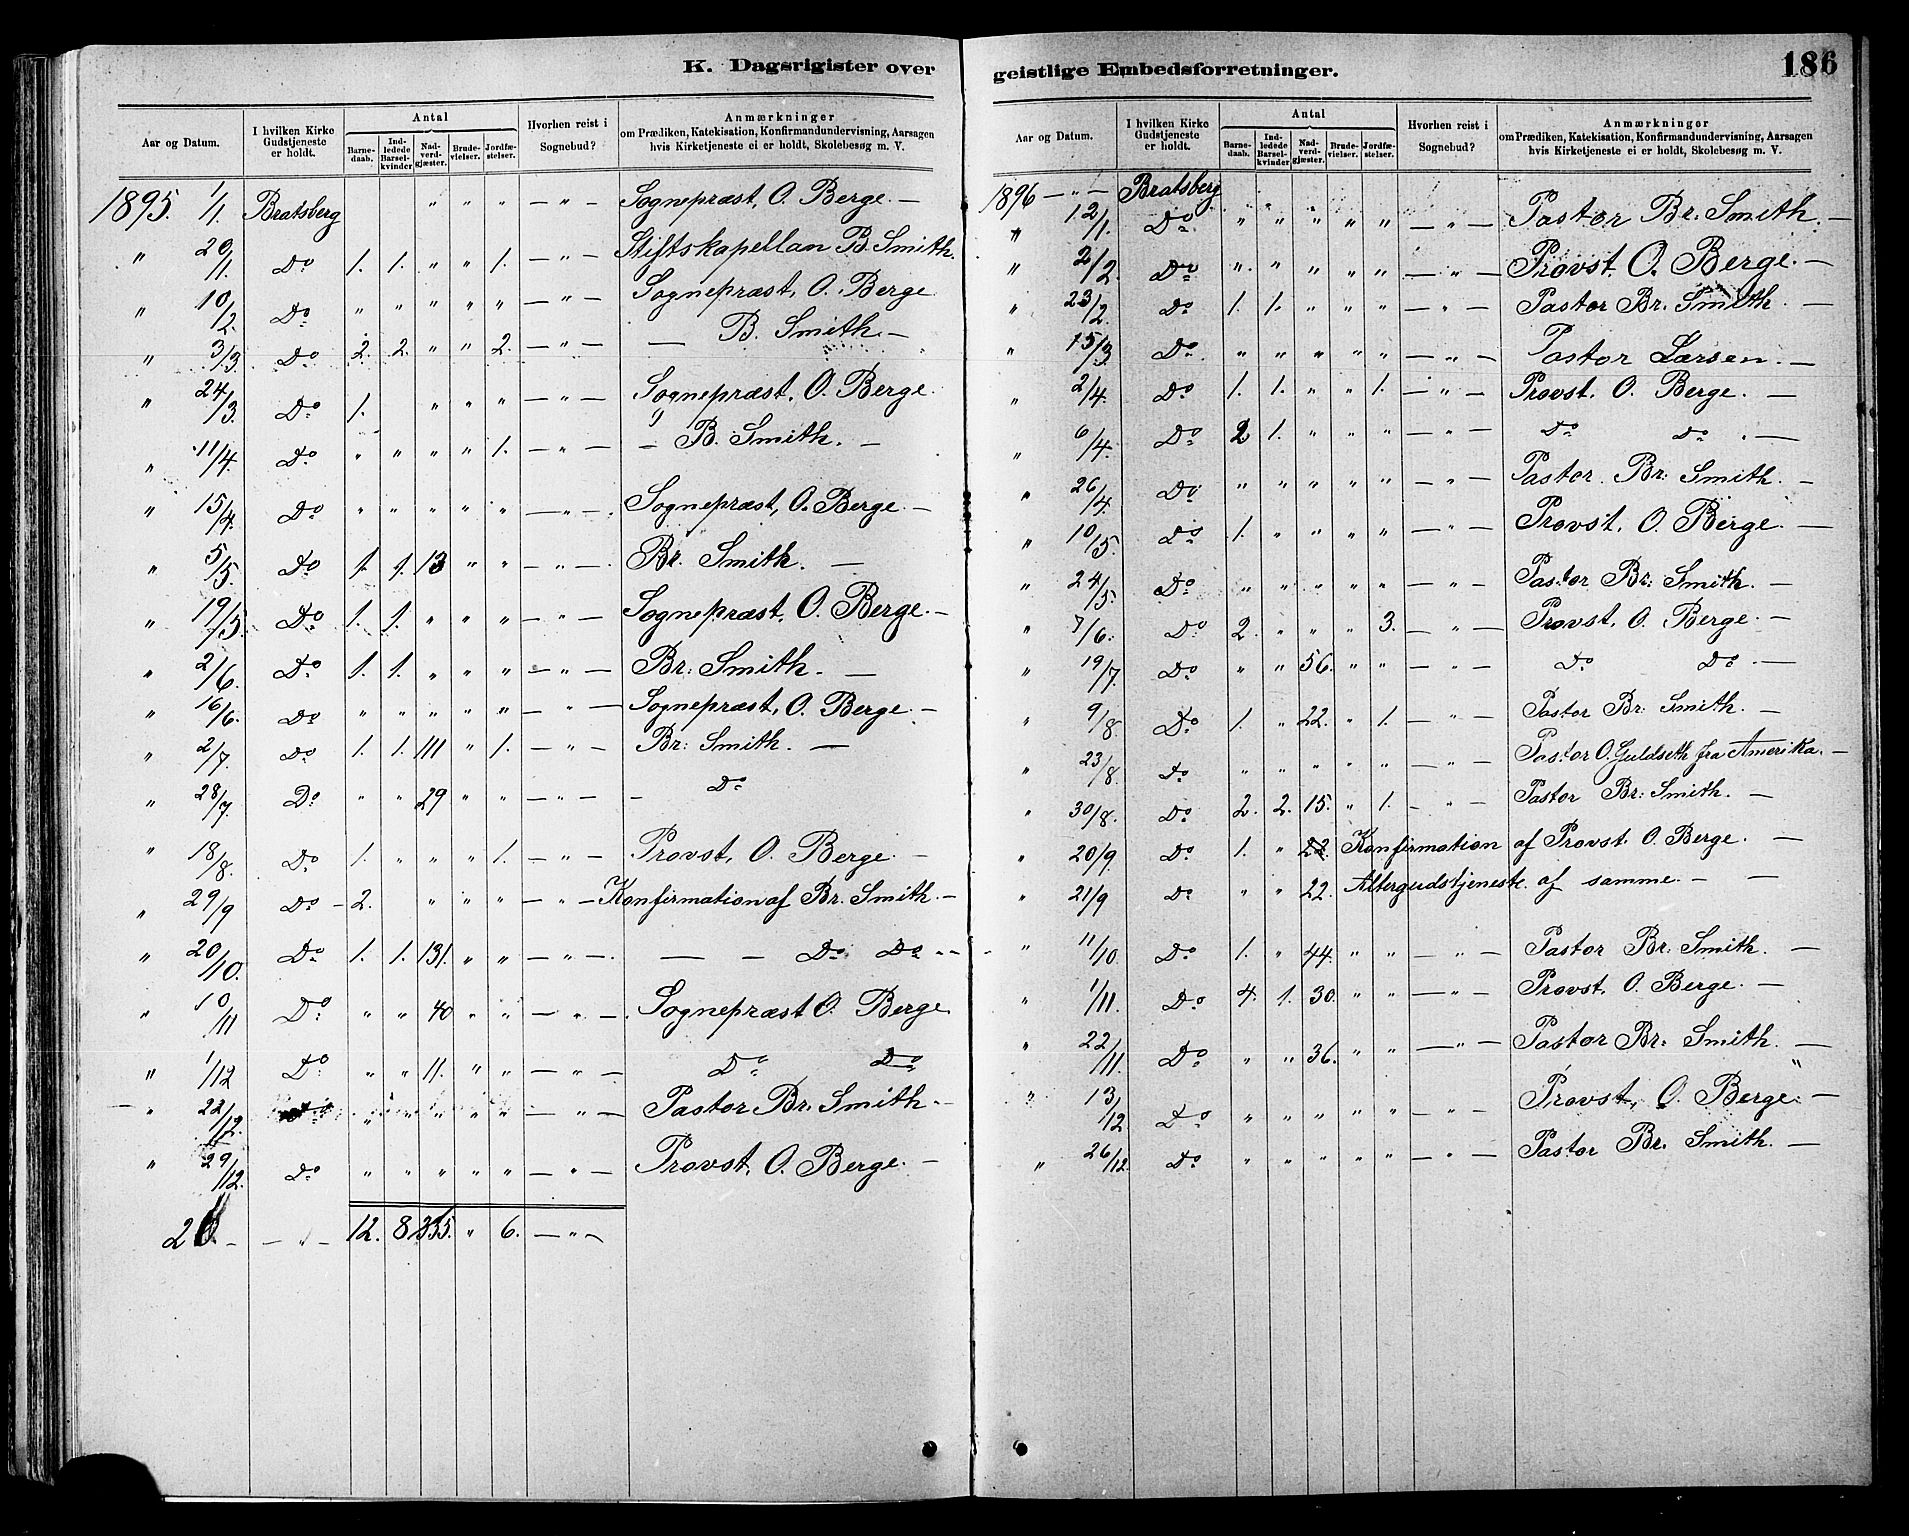 K. Dagsrigister over
Aar og Datum. I hvilken Kirke Gudstjeneste er holdt. Antal Barnedaab. Indledede Barselkvinder Nadverdgjæster. Brudevielser. Jordfæstelser. Hvorhen reist i Sognebud? Anmærkninger om Prædiken, Katekisation, Konfirmandundervisning, Aarsagen hvis Kirketjeneste ei er holdt, Skolebesøg m. V.
1895. 1/1. Bratsberg " " " — " — Sognepræst, O. Berge. —
" 20/1. Do 1. 1. " " 1. — " — Stiftskapellan B. Smith.
" 10/2. Do " " " " " — " — Sognepræst, O. Berge
" 3/3. Do 2. 2. " " 2. — " — — B. Smith. —
" 24/3. Do 1. " " " — " — Sognepræst, O. Berge.
" 11/4. Do " " " " 1. — " — — B. Smith. —
" 15/4. Do " " " " " — " — Sognepræst, O. Berge —
" 5/5. Do 1. 1. 13 " " — " — Br. Smith. —
" 19/5. Do 1. 1. " " " — " — Sognepræst, O. Berge. —
" 2/6. Do 1. 1. " " " — " — Br: Smith. —
" 16/6. Do " " " " " — " — Sognepræst, O. Berge. —
" 2/7. Do 1. 1. 111 " 1. — " — Br: Smith. —
" 28/7. Do " " 29 " " — " — — Do
" 18/8. Do 1. " " " 1. — " — Provst, O. Berge. —
" 29/9 Do 2. " " " — " — Konfirmation af Br. Smith. —
" 20/10. Do 1. 1. 131. " " — " — — — Do Do
" 10/11 Do " " 40 " " — " — Sognepræst O. Berge
" 1/12 Do " " 11. " " — " — Do Do
" 22/12. Do " " " " " — " — Pastor Br. Smith. —
" 29/12. Do " " " " " — " — Provst, O. Berge. —
— " — 12. 8 335. " 6. — " —
geistlige Embedsforretninger.
186
Aar og Datum. I hvilken Kirke Gudstjeneste er holdt. Antal Barnedaab. Indledede Barselkvinder Nadverdgjæster. Brudevielser. Jordfæstelser. Hvorhen reist i Sognebud? Anmærkninger om Prædiken, Katekisation, Konfirmandundervisning, Aarsagen hvis Kirketjeneste ei er holdt, Skolebesøg m. V.
1896 — " — Bratsberg
" 12/1. Do " " " " " — " — Pastor Br. Smith —
" 2/2. Do " " " " " — " — Provst. O. Berge. —
" 23/2. Do 1. 1. " " " — " — Pastor Br. Smith —
" 15/3. Do " " " " " — " — Pastor Larsen. —
" 2/4. Do 1. 1. " " 1. — " — Provst. O. Berge. —
" 6/4. Do 2 1. " " " — " — Do Do. —
" 26/4. Do " " " " " — " — Pastor Br: Smith. —
" 10/5. Do 1. " " " " — " — Provst, O. Berge. —
" 24/5. Do " " " " " — " — Pastor Br: Smith. —
" 7/6. Do 2. " " " 3. — " — Provst, O. Berge. —
" 19/7. Do " " 56. " " — " — Do Do. —
" 9/8. Do 1. " 22. " 1. — " — Pastor Br: Smith. —
" 23/8. Do " " " " " — " — Pastor O. Guldseth fra Amerika. —
" 30/8. Do 2. 2. 15. " 1. — " — Pastor Br: Smith. —
" 20/9 Do 1. " 22. Konfirmation af Provst. O. Berge. —
" 21/9 Do " " 22. Altergudstjeneste af samme. — —
" 11/10. Do 1. " 44. " " — " — Pastor Br: Smith. —
" 1/11. Do 4. 1. 30. " " — " — Provst, O. Berge. —
" 22/11. Do " " 36. " " — " — Pastor Br. Smith. —
" 13/12 Do " " " " " — " — Provst, O. Berge. —
" 26/12. Do " " " " " — " — Pastor Br. Smith. —